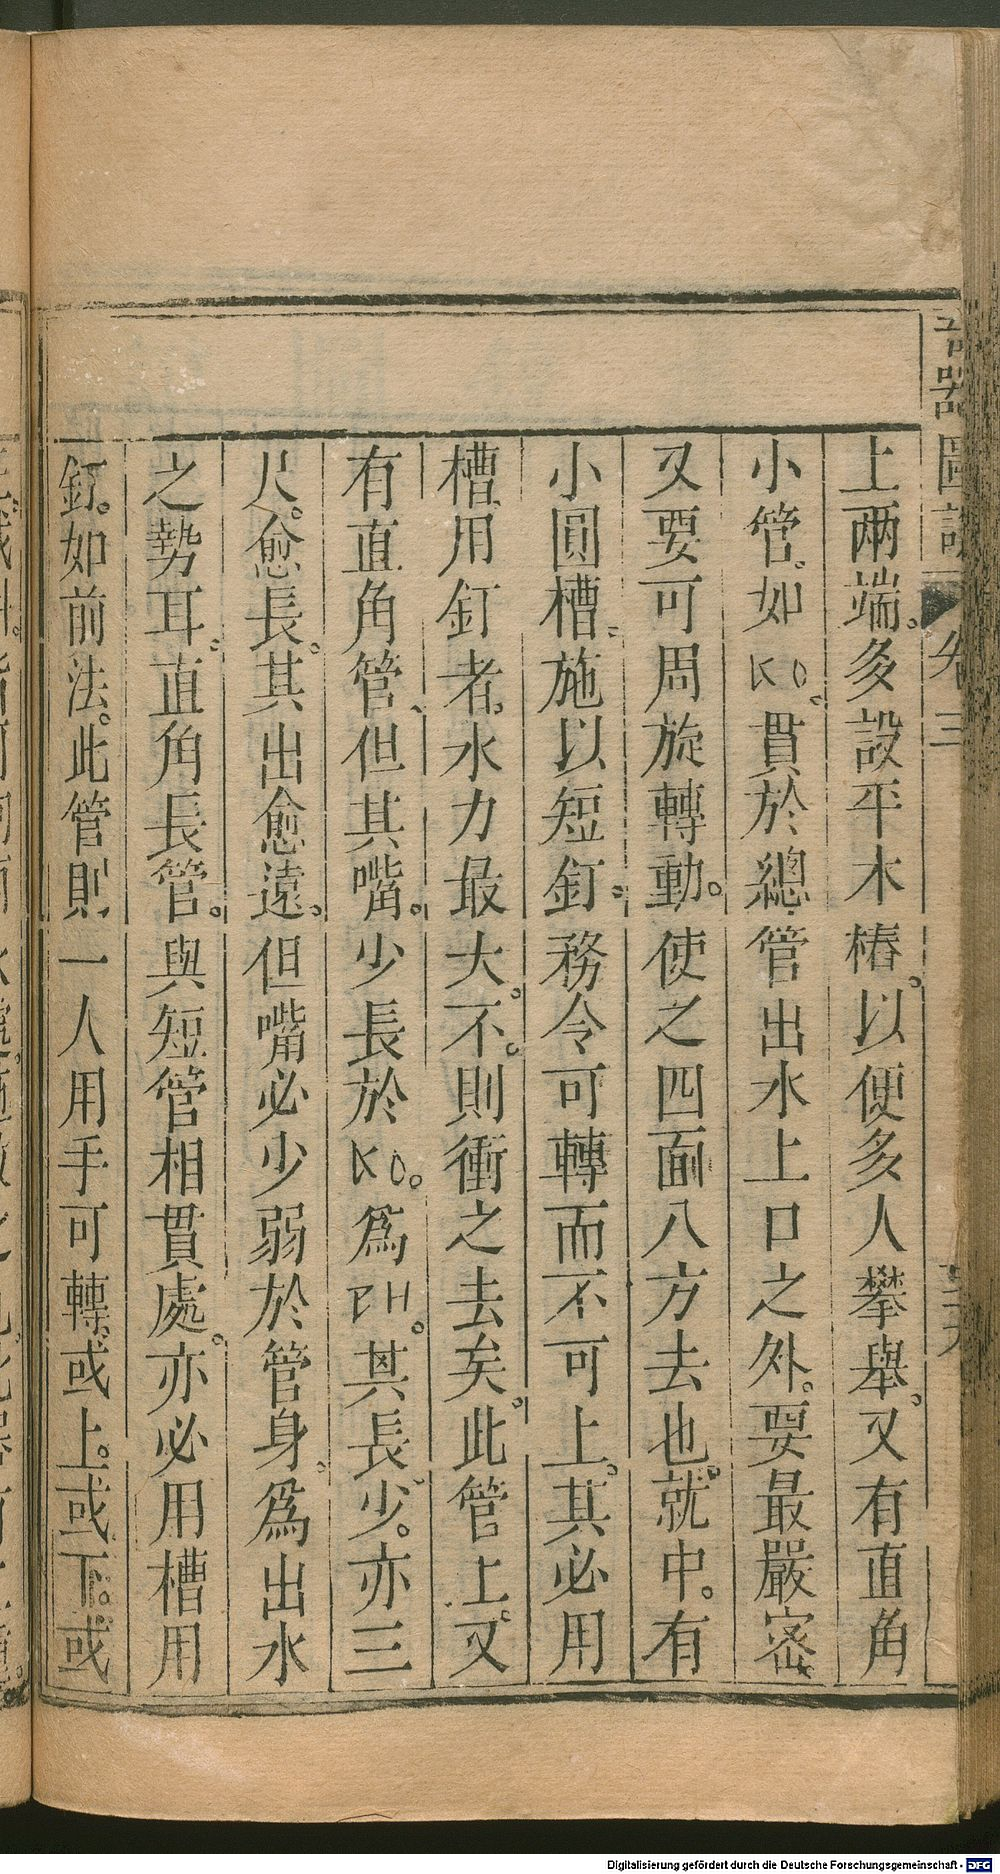 奇器圖說 卷三
上兩端。多設平木樁。以便多人攀舉。又有直角
小管。如KO。貫於總管出水上口之外。要最嚴密
又要可周旋轉動。使之四面八方去也。就中。有
小圓槽。施以短釘。務令可轉而不可上。其必用
槽用釘者。水力最大。不。則衝之去矣。此管上。又
有直角管。但其嘴。少長於KO。爲PH。其長少。亦三
尺。愈長。其出愈遠。但嘴必少弱於管身。爲出水
之勢耳。直角長管。與短管相貫處。亦必用槽用
釘。如前法。此管則一人用手可轉。或上。或下。或
Digitalisierung gefördert durch die Deutsche Forschungsgemeinschaft - DFG